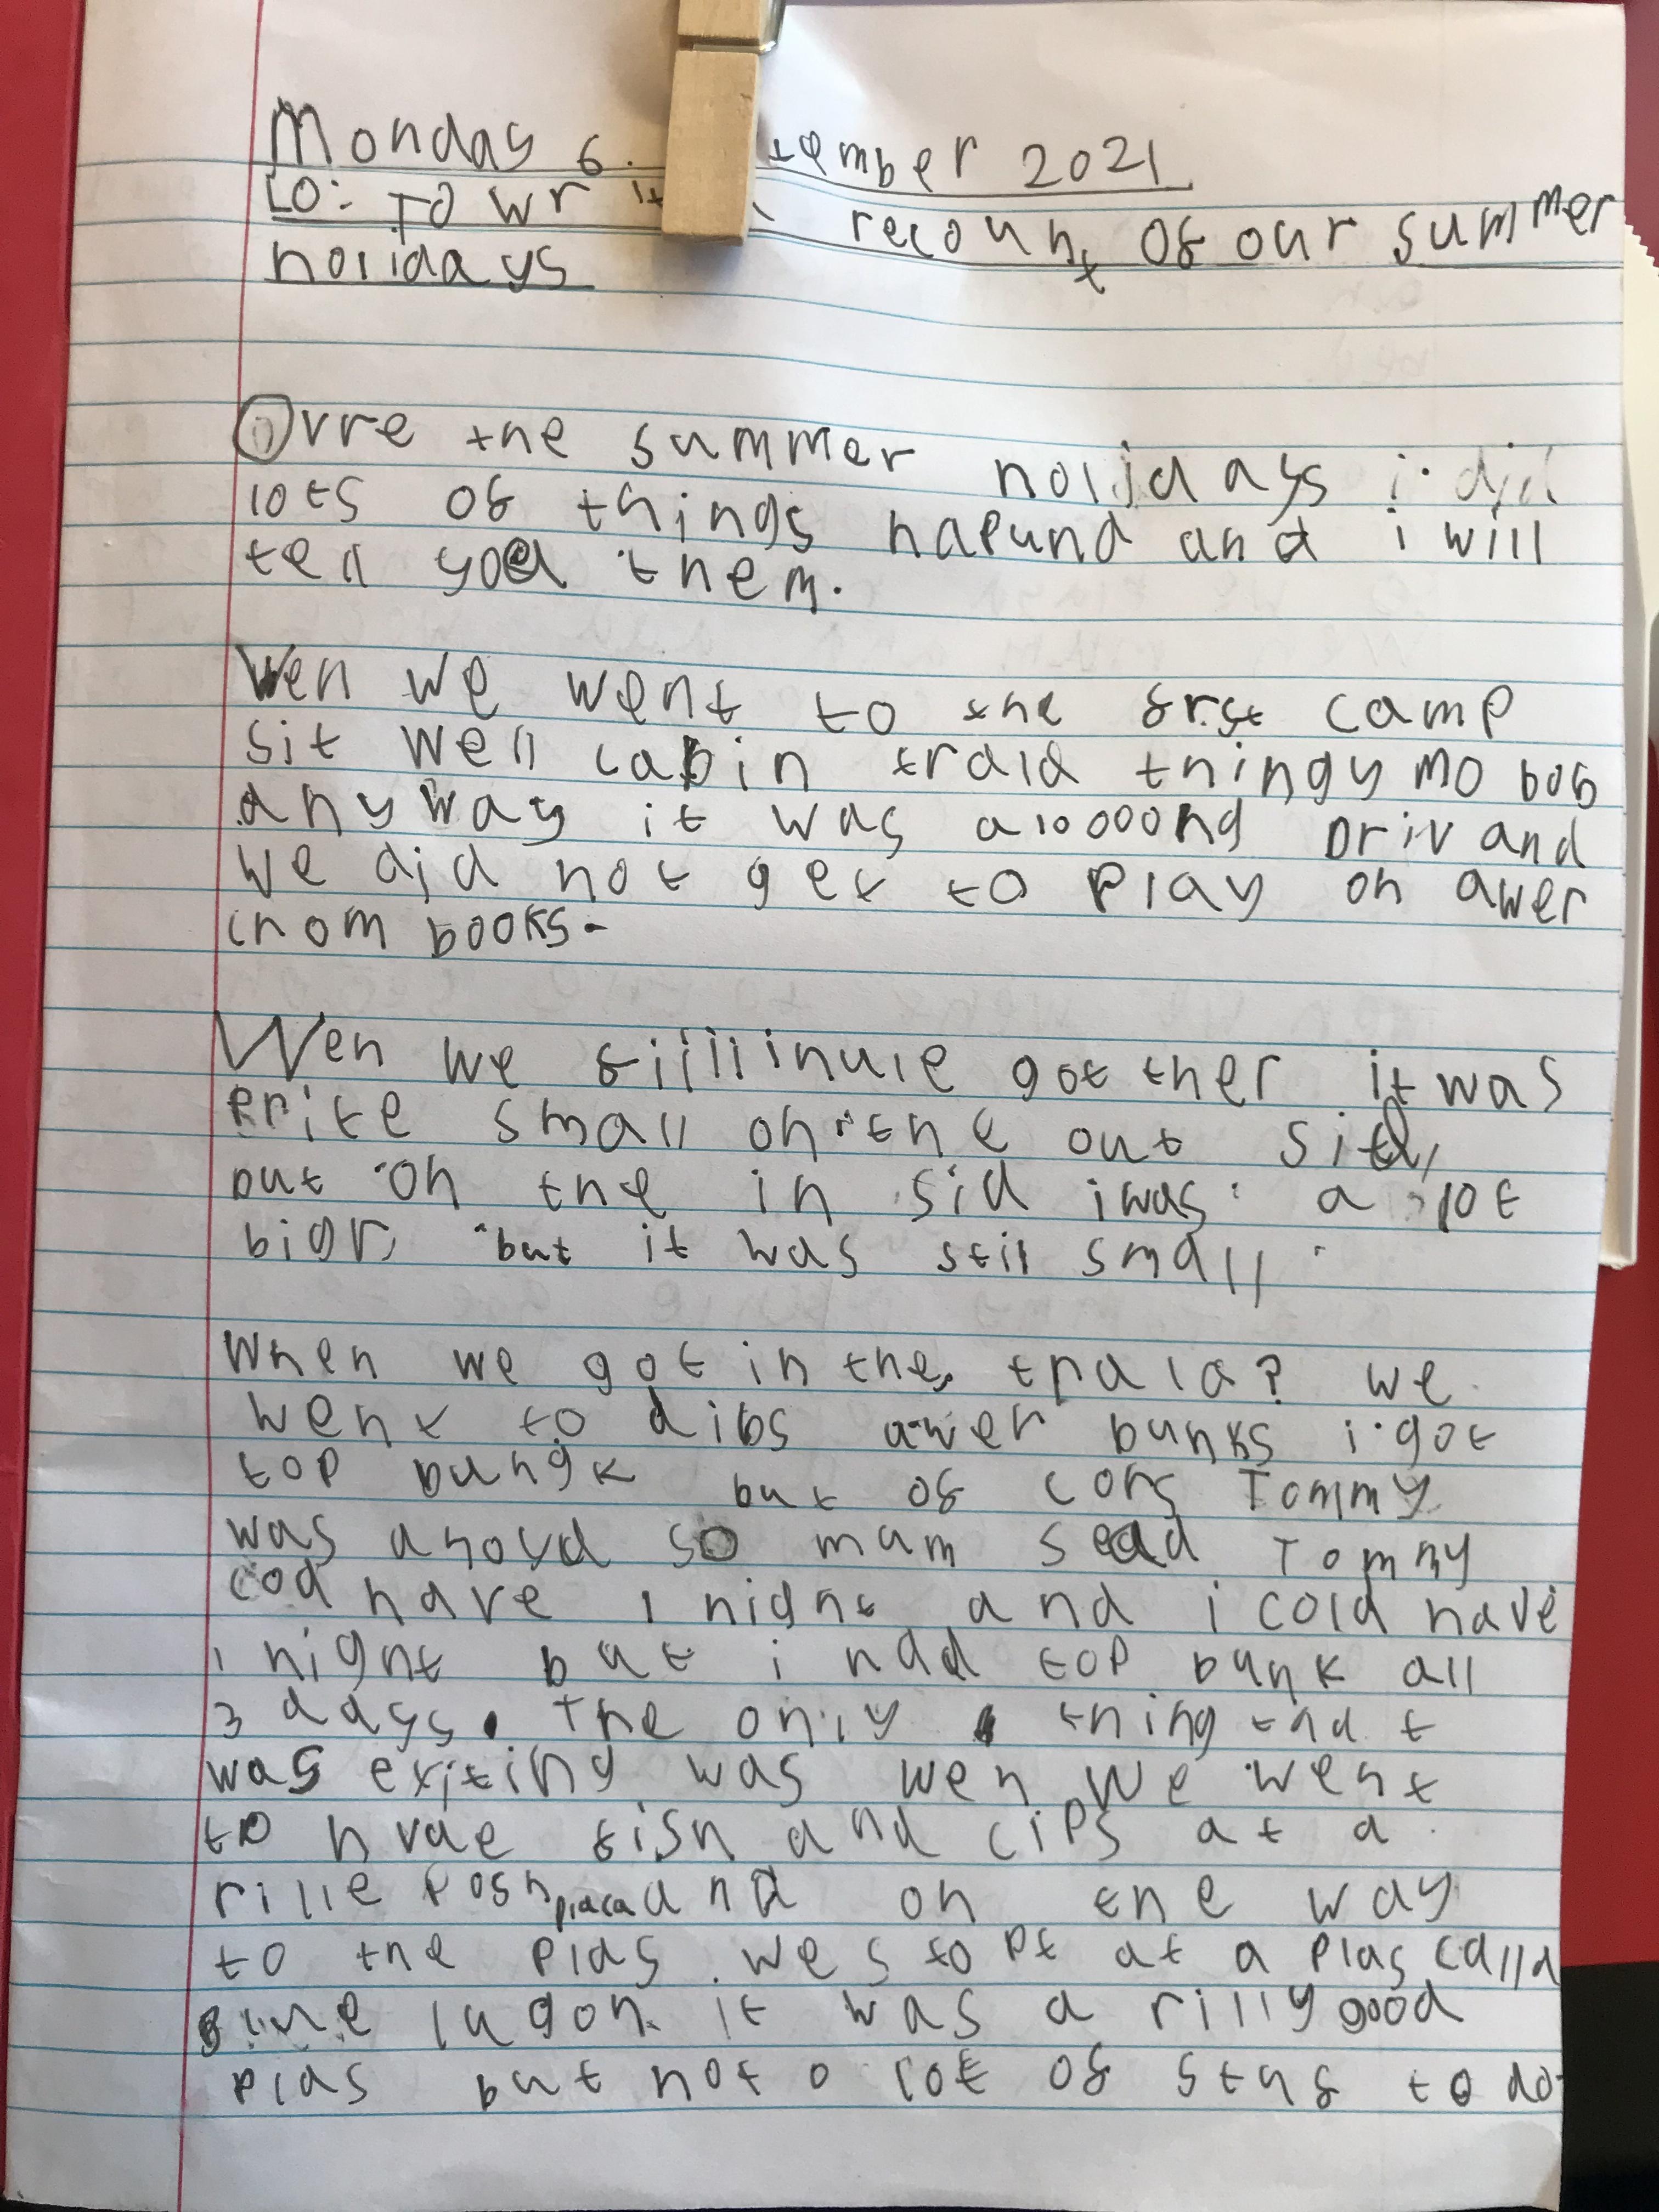 Monday 6. tember 2021
LO: To writ recount of our summer
holidays
Ovre the summer holidays i did
lots of things hapund and i will
tell you them.
Wen we went to the frst camp
sit well cabin trald thingy mo bob
anyway it was a loooong Driv and
we did not get to play on awer
crom books.
Wen we fiiillinule got ther it was
Prite small on the out sid,
but on the in sid iwas a lot
bigr, but it was still small.
When we got in the trala? we
went to dibs awer bunks i got
top bungk but of cors Tommy
was anoyd so mum sead Tommy
cod have 1 night and i cold have
1 night but i had top bunk all
3 days. The only thing that
was exiting was wen we went
to hvae fish and cips at a
rillie Posh placa and on the way
to the plas we stopt at a plas calld
lagon. it was a rilly good
plas but not a lot of stuf to do